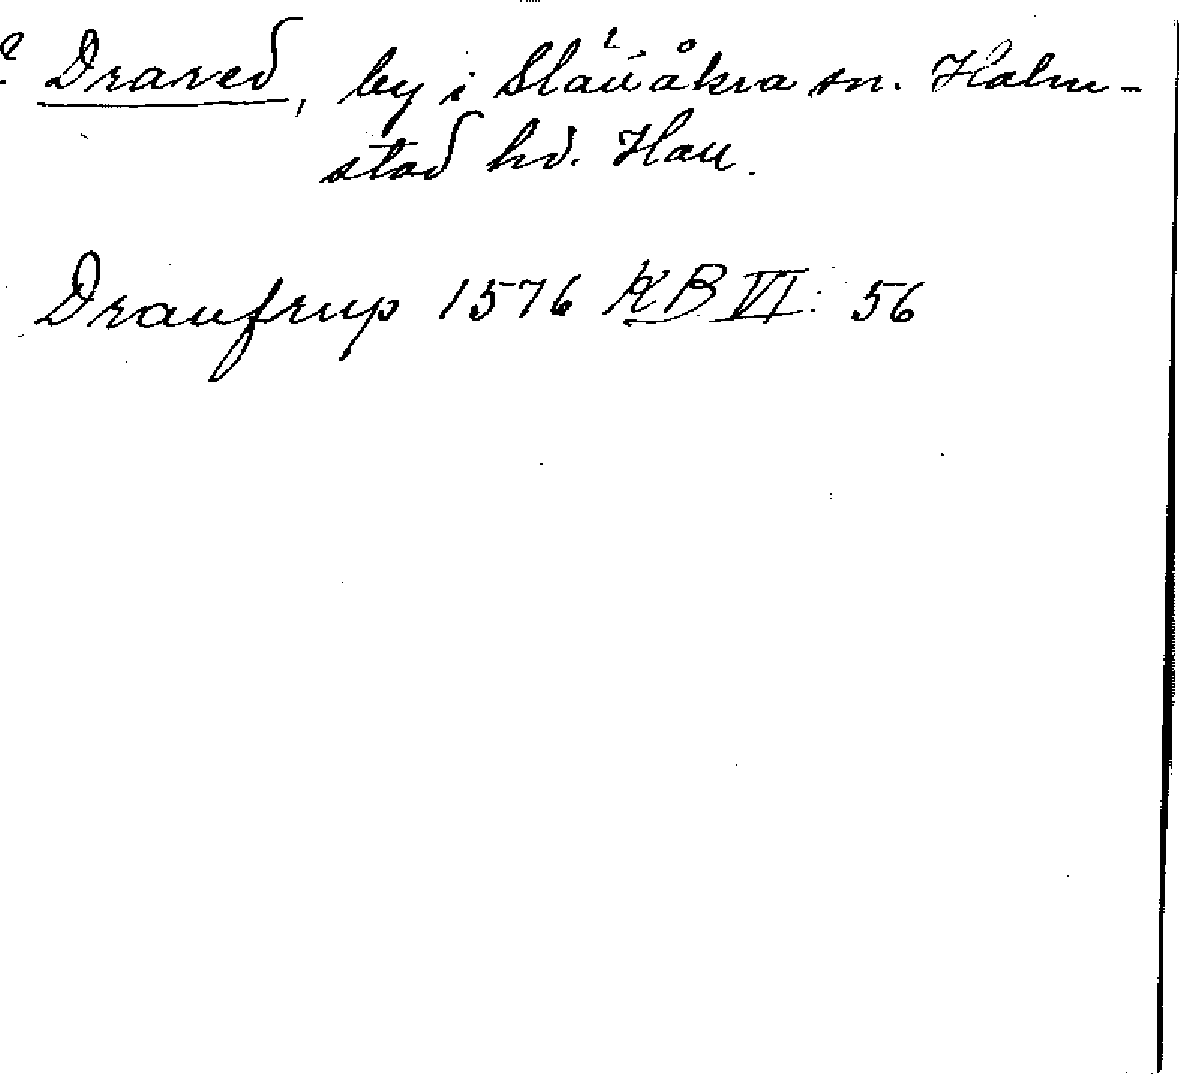 ? Draved, by i Slättåkra sn. Halm-
stad hd. Hall.
Draufrup 1576 KB VI: 56